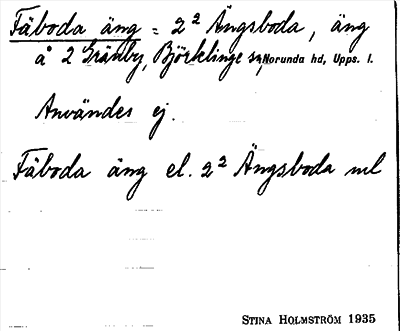 Fäboda äng = 2² Ängsboda, äng
å 2 Gränby, Björklinge sn, Norunda hd, Upps. l.
Användes ej.
Fäboda äng el. 2² Ängsboda ml
STINA HOLMSTRÖM 1935